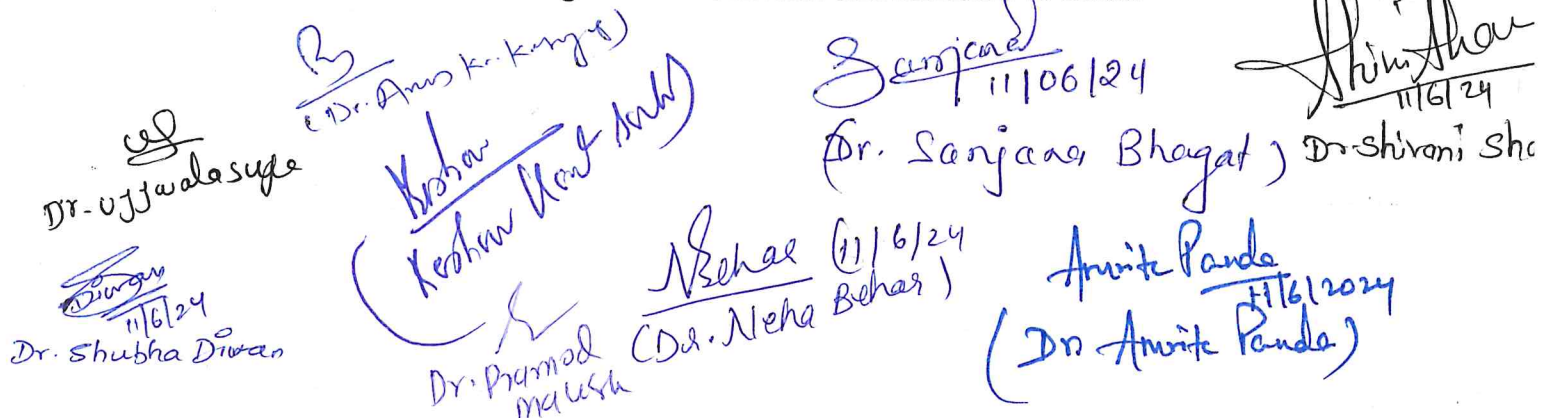 (Dr. Anus Kr.
Dr. Ujjwala Supe
Keshav
(Keshav Kant
Sanjana
11/06/24
(Dr. Sanjana Bhagat)
11/6/24
Dr Shivani Sha
Diwan
11/6/24
Dr. Shubha Diwan
Dr. Pramod
NBehar 11/6/24
(Dr. Neha Behar)
Amrita Panda
11/6/2024
(Dr Amrita Panda)